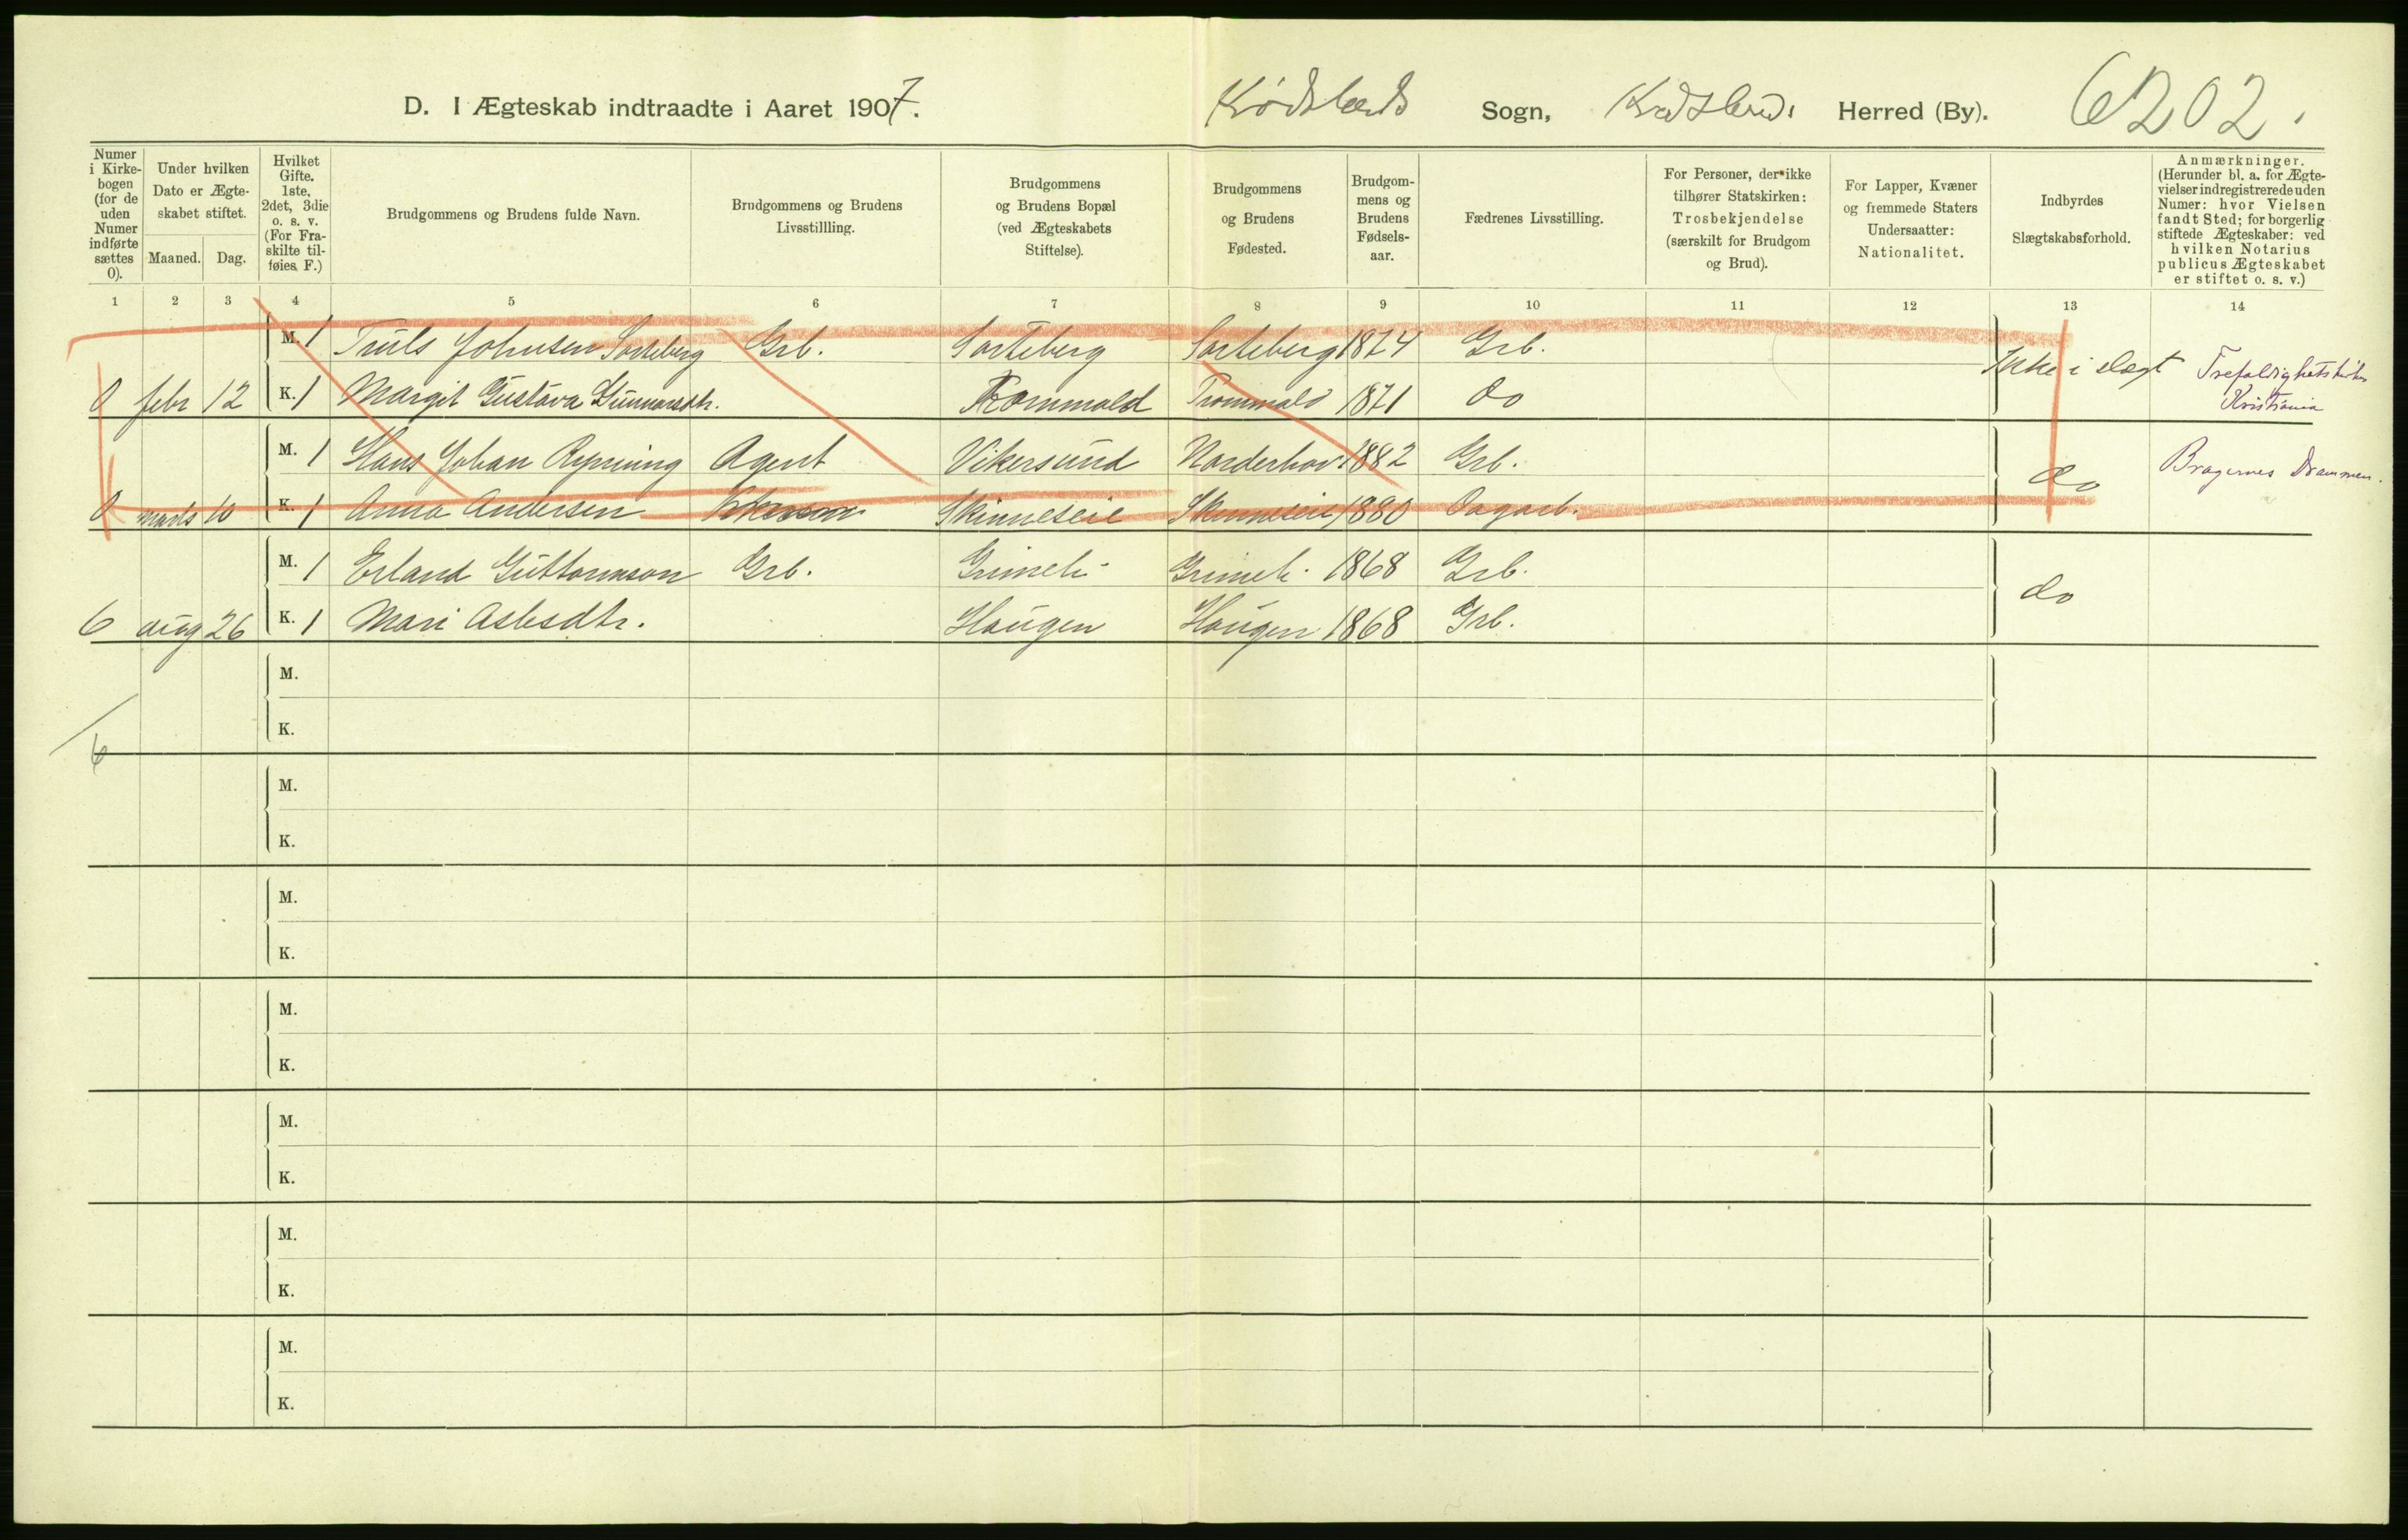 D. I Ægteskab indtraadte i Aaret 1907. Krødsherd Sogn, Krødsherd. Herred (By). 6202.
Numer i Kirkebogen (for de uden Numer indførte sættes 0).
Under hvilken Dato er Ægteskabet stiftet.
Maaned. Dag.
Hvilket Gifte. 1ste, 2det, 3die o. s. v. (For Fraskilte tilføies F.)
Brudgommens og Brudens fulde Navn.
Brudgommens og Brudens Livsstillling.
Brudgommens og Brudens Bopæl (ved Ægteskabets Stiftelse).
Brudgommens og Brudens Fødested.
Brudgommens og Brudens Fødselsaar.
Fædrenes Livsstilling.
For Personer, der ikke tilhører Statskirken: Trosbekjendelse (særskilt for Brudgom og Brud).
For Lapper, Kvæner og fremmede Staters Undersaatter: Nationalitet.
Indbyrdes Slægtskabsforhold.
Anmærkninger. (Herunder bl. a. for Ægtevielser indregistrerede uden Numer: hvor Vielsen fandt Sted; for borgerlig stiftede Ægteskaber: ved hvilken Notarius publicus Ægteskabet er stiftet o. s. v.)
1 2 3 4 5 6 7 8 9 10 11 12 13 14
M. 1 Truls Johnsen Sorteberg Grb. Sorteberg Sorteberg 1874 Grb. Ikke i slægt Trefoldighetskirken
0 febr 12 K. 1 Margit Gustava Gunnarsdtr. Trommald Trommald 1871 do Kristiania
M. 1 Hans Johan Rypning Agent Vikersund Norderhov 1882 Grb. do Bragernes Drammen.
0 marts 10 K. 1 Anna Andersen Skinneseie Skinneseie 1880 Dagarb.
M. 1 Erland Guttormson Grb. Grimeli Grimeli 1868 Grb. do
6 aug 26 K. 1 Mari Aslesdtr. Haugen Haugen 1868 Grb.
M.
K.
6
M.
K.
M.
K.
M.
K.
M.
K.
M.
K.
M.
K.